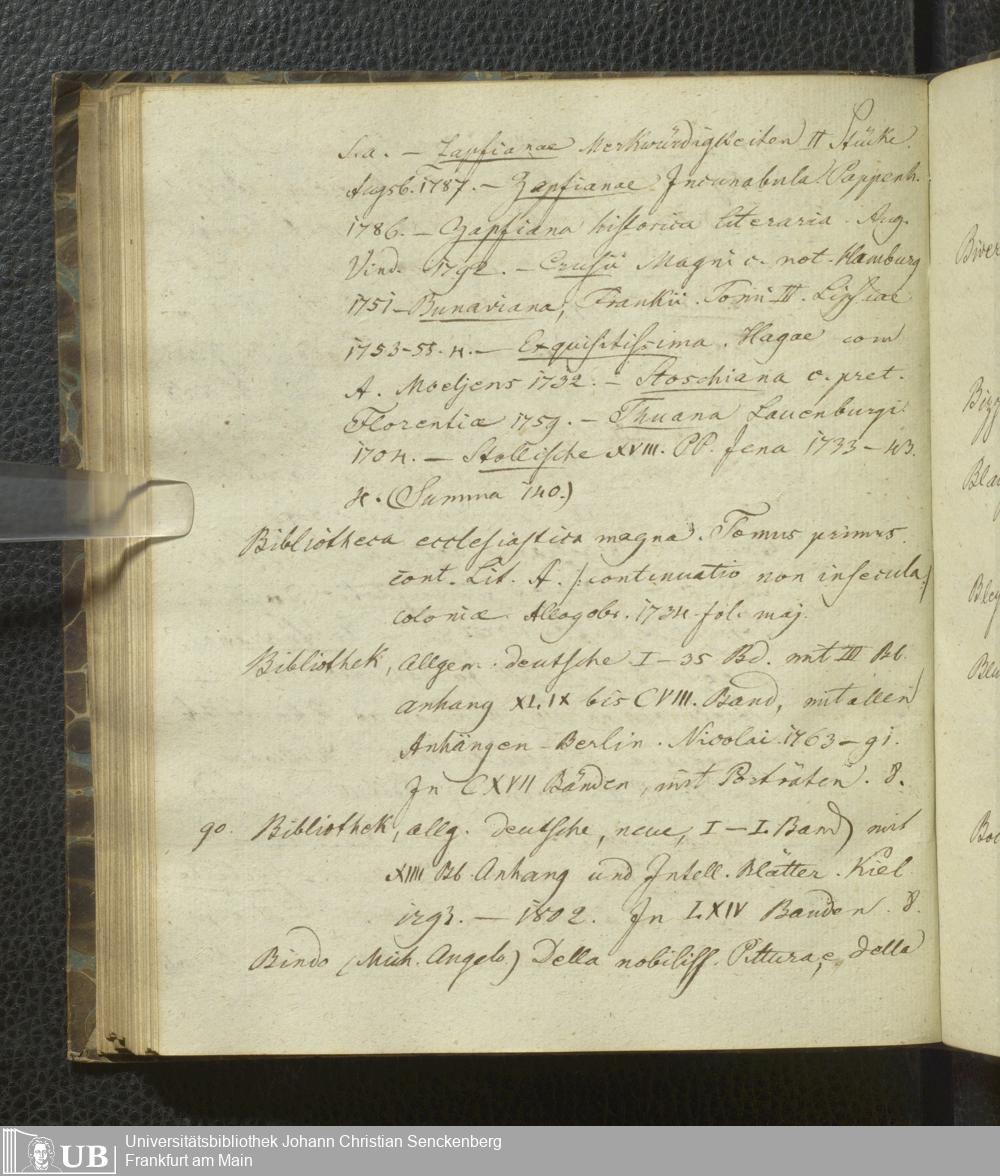 S. a. – Zapfianae Merkwürdigkeiten II Stücke.
Augsb. 1787. – Zapfianae Incunabula. Pappenh.
1786. – Zapfiana historica literaria. Aug.
Vind. 1792. – Crusii Magni c. not. Hamburg
1751 – Bunaviana, Frankii. Tomi III. Lipsiae
1753–55. 4. – Exquisitissima. Hagae com
A. Moetjens 1732. – Stoschiana c. pret.
Florentiæ 1759. – Thuana Lauenburgi
1704. – Stollische XVIII. PP. Jena 1733–43.
4. (Summa 140.)
Bibliotheca ecclesiastica magna. Tomus primus.
cont. Lit. A. /: continuatio non insecuta :/
coloniæ Allogobr. 1734 fol. maj.
Bibliothek, allgem. deutsche I–35 Bd. mit III Bb.
anhang XLIX bis CVIII. Band, mit allen
Anhängen – Berlin. Nicolai 1763–91.
In CXVII Bänden, mit Porträten. 8.
90. Bibliothek, allg. deutsche, neue, I–L Band mit
XIIII Bb. Anhang und Intell. Blätter. Kiel
1793. – 1802. In LXIV Banden. 8.
Bindo (Mich. Angelo.) Della nobiliss. Pittura, e della
Biver
Bizz
Bla
Bley
Blu
Boc
UB
Universitätsbibliothek Johann Christian Senckenberg
Frankfurt am Main